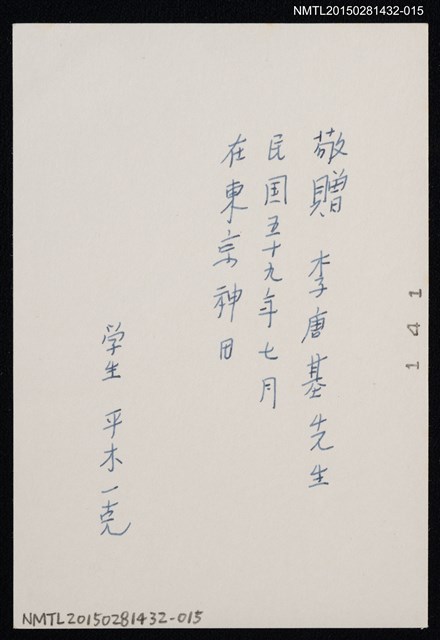 NMTL20150281432-015
敬贈 李唐基先生
民国五十九年七月
在東京神田
学生 平木一克
141
NMTL20150281432-015